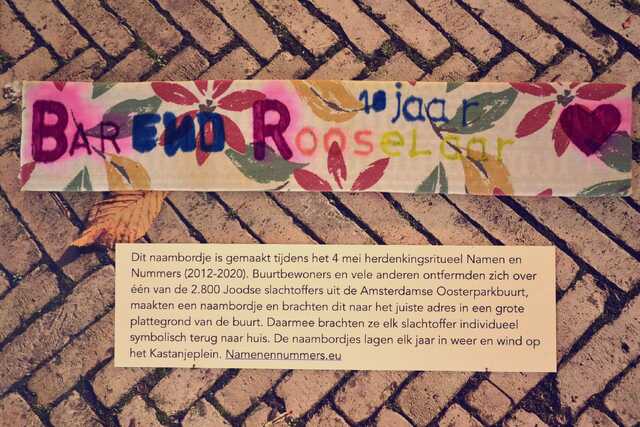 BAREND ROOSELAAR 10 jaar
Dit naambordje is gemaakt tijdens het 4 mei herdenkingsritueel Namen en
Nummers (2012-2020). Buurtbewoners en vele anderen ontfermden zich over
één van de 2.800 Joodse slachtoffers uit de Amsterdamse Oosterparkbuurt,
maakten een naambordje en brachten dit naar het juiste adres in een grote
plattegrond van de buurt. Daarmee brachten ze elk slachtoffer individueel
symbolisch terug naar huis. De naambordjes lagen elk jaar in weer en wind op
het Kastanjeplein. Namenennummers.eu